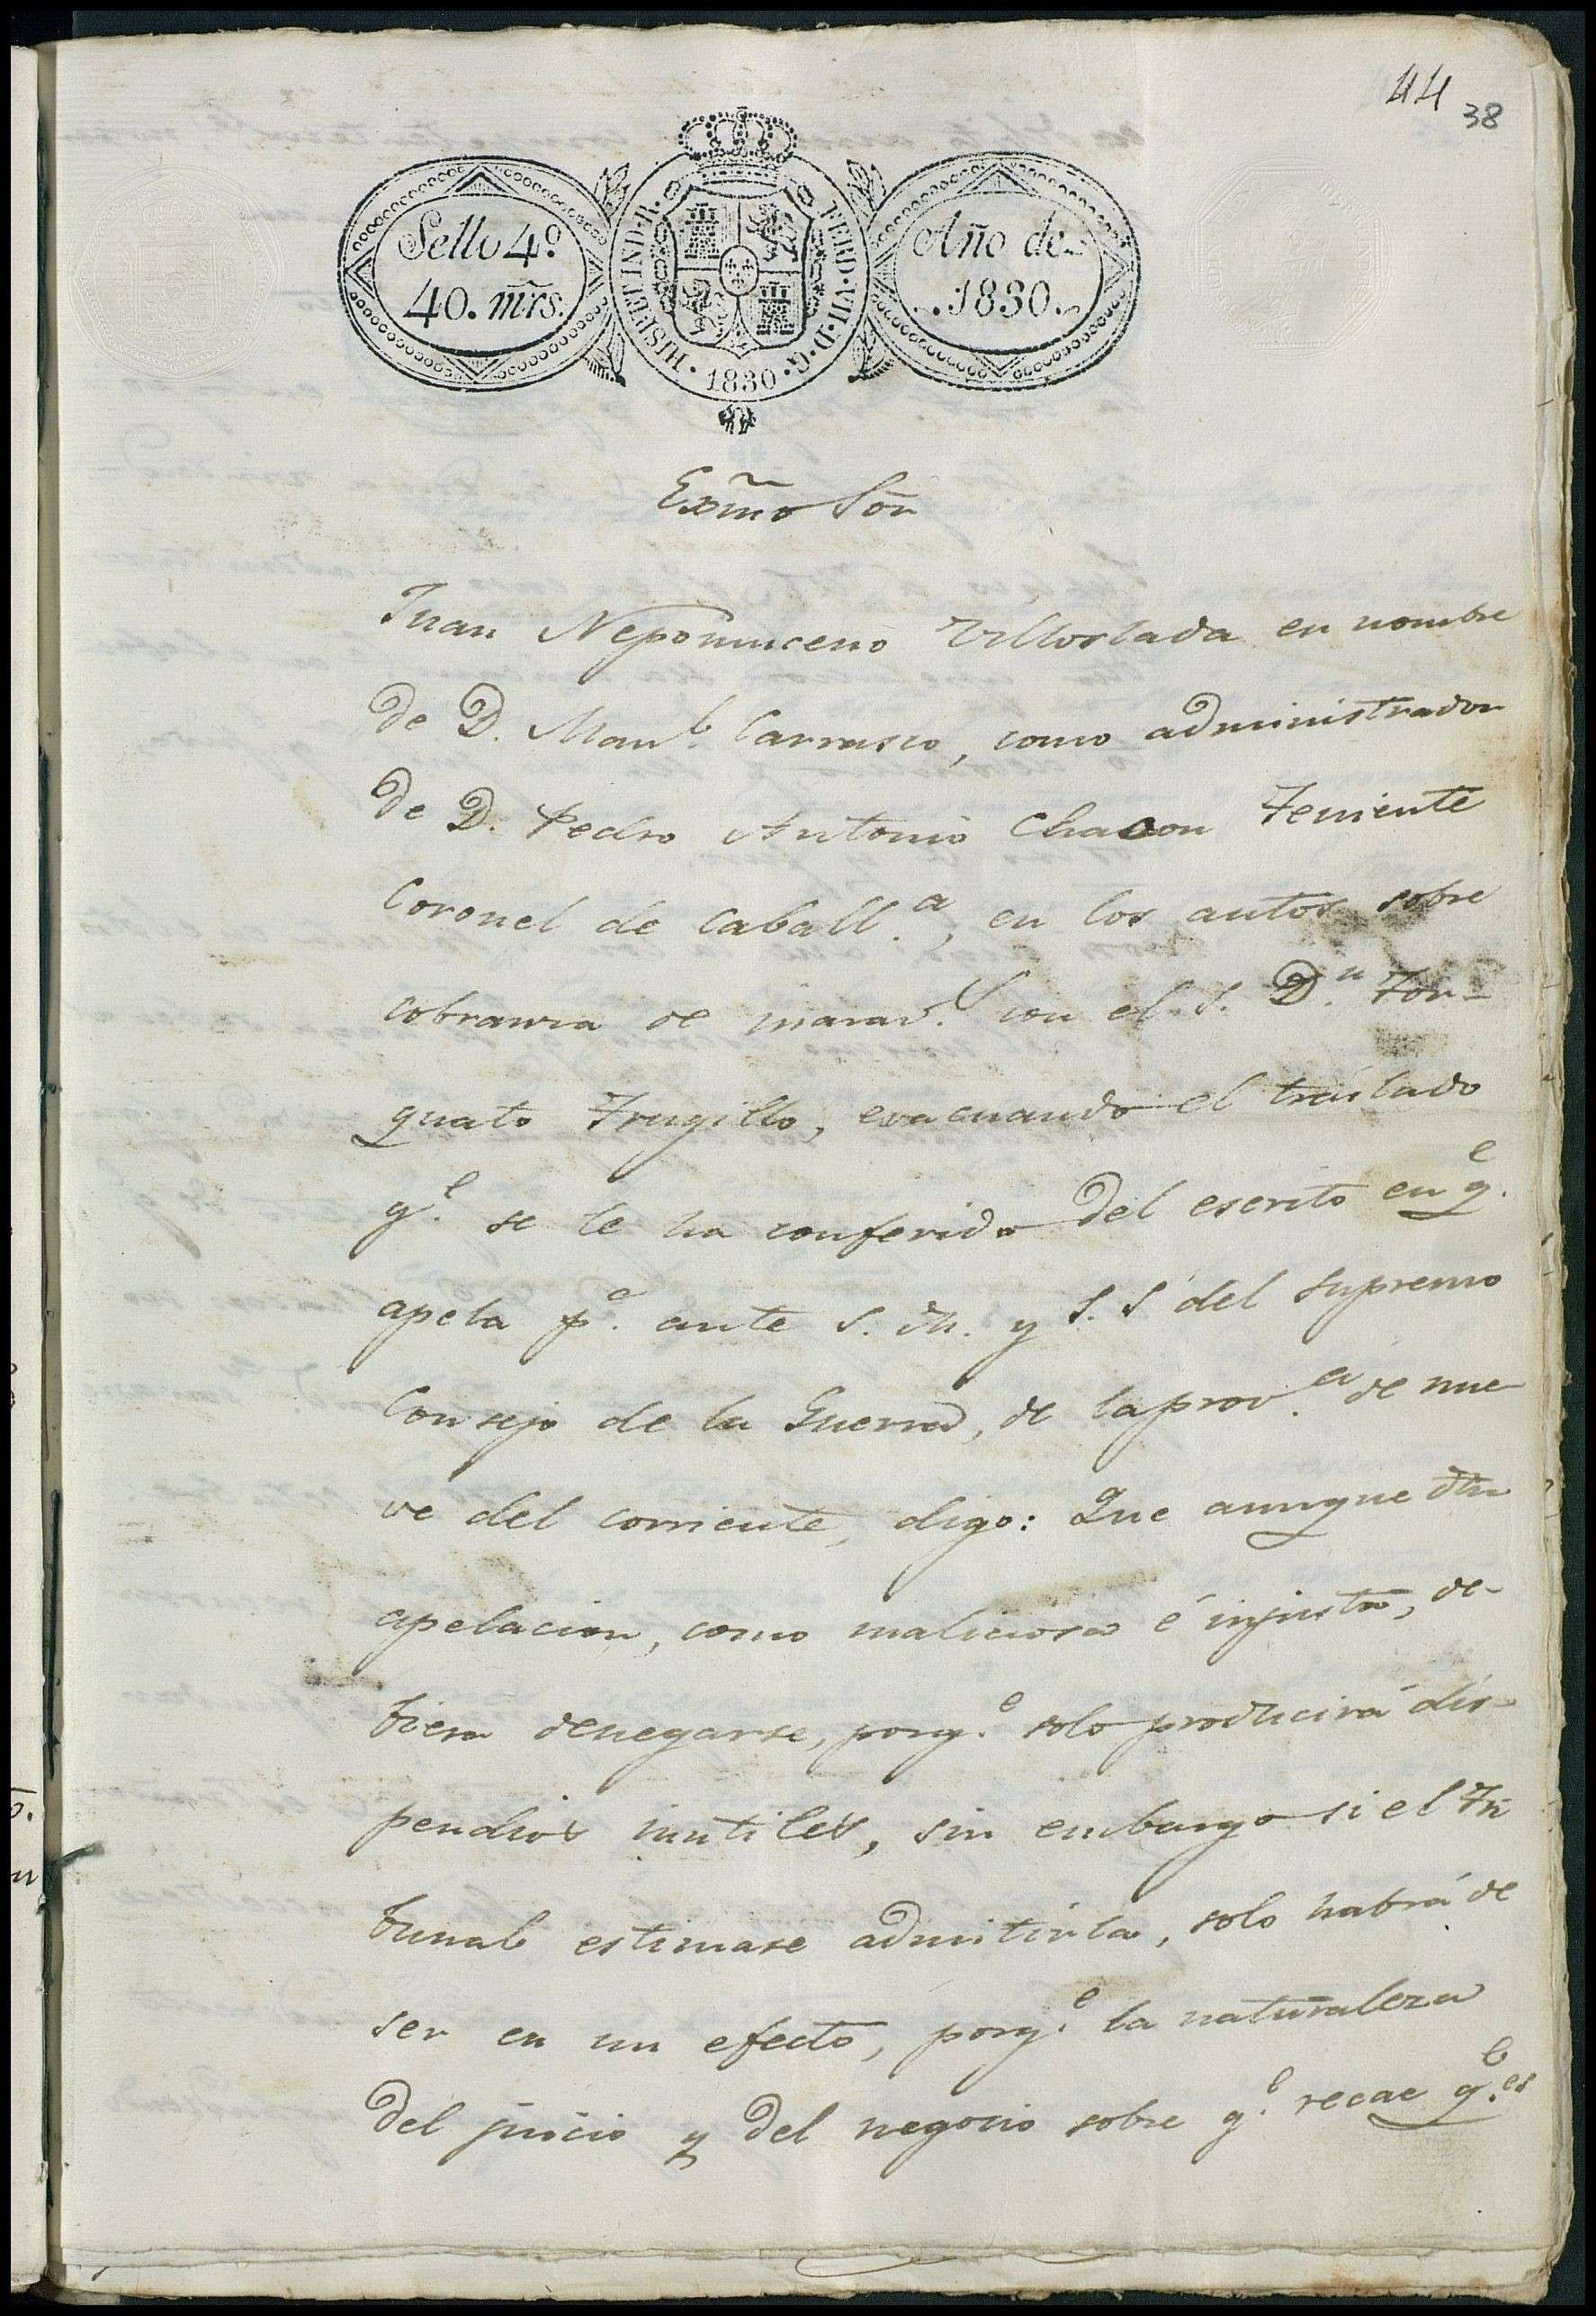 44
38
Sello 4.º
40. mrs.
HISP. ET IND. R.
FERD. VII. D. G.
1830
Año de
1830.
Exmo Sor
Juan Nepomuceno Villoslada en nombre
de D. Manl. Carrasco, como administrador
de D. Pedro Antonio Chacon Teniente
Coronel de Caball.a, en los autos sobre
cobranza de marav.s con el S. D.n Tor-
quato Trugillo, evacuando el traslado
q.e se le ha conferido del escrito en q.e
apela p.a ante S. M. y S. S del Supremo
Consejo de la Guerra, de la prov.a de nue
ve del corriente, digo: Que aunque dha
apelacion, como maliciosa é injusta, de-
biera denegarse, porq.e solo producirá dis-
pendios inutiles, sin embargo si el Tri
bunal estimase admitirla, solo habrá de
ser en un efecto, porq.e la naturaleza
del juicio y del negocio sobre q.e recae q.e es